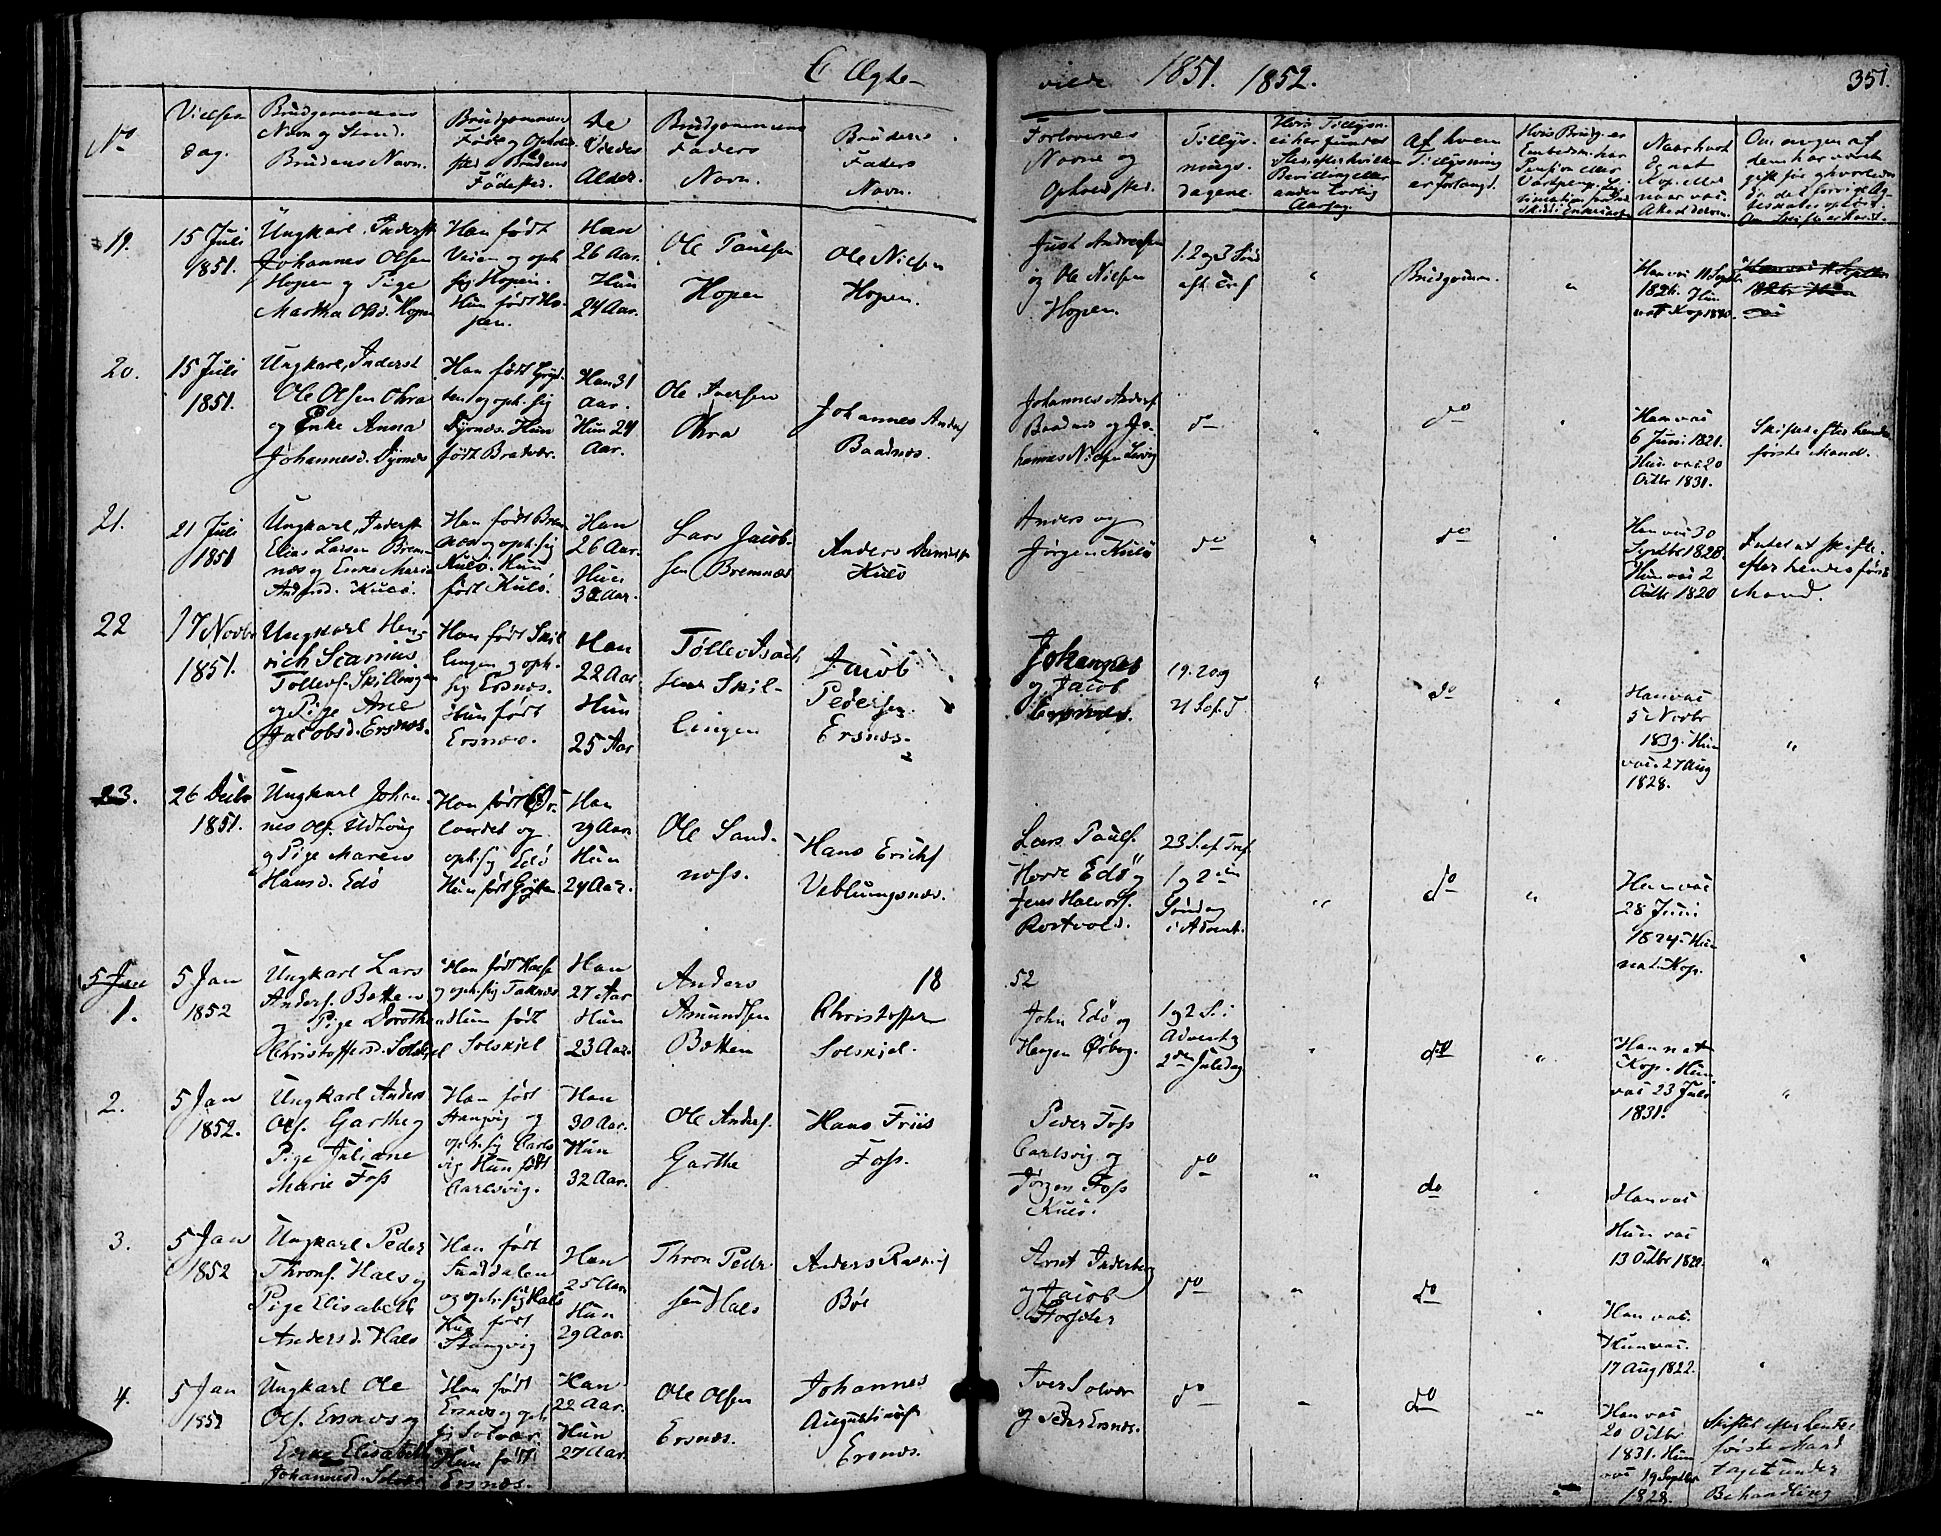 C Ægte-
vilde 1851. 1852.
351.
No
Vielses
dag.
Brudgommens
Navn og Stand.
Brudens Navn.
Brudgommens
Føde og Opholds
sted. Brudens
Fødested.
De
Viedes
Alder.
Brudgommens
Faders
Navn.
Brudens
Faders
Navn.
Forlovernes
Navne og
Opholdssted.
Tillys-
nings-
dagene.
Af hvem
Tillysning
er forlangt.
19.
15 Juli
1851.
Ungkarl, Inderst
Johannes Olsen
Hopen og Pige
Martha Olsd. Hopen
Han født
Veien og oph
sig Hopen.
Hun født Ho-
pen.
Han
26 Aar.
Hun
24 Aar.
Ole Paulsen
Hopen
Ole Nielsen
Hopen.
Just Andreasen
og Ole Nielsen
Hopen.
1. 2 og 3 Sønd
aft. Tref
"
Brudgommen.
"
Han vac 11 Septbr
1826. Hun
nat Kop 1840.
20.
15 Juli
1851.
Ungkarl, Inderst
Ole Olsen Othra
og Enke Anna
Johannesd. Dyrnæs
Han født
og oph. sig
Dyrnæs. Hun
født Bradvær.
Han 31
Aar.
Hun 24
Aar.
Ole Iversen
Othra
Johannes Anders
Baadnæs.
Johannes Anders
Baadnæs og Jo-
hannes Nielsen
do
"
do
Han vac
6 Juni 1821.
Hun vac 20
Octbr 1831.
Skifte efter hendes
første Mand.
21.
21 Juli
1851
Ungkarl, Inderst
Elias Larsen Brem-
næs og Enke Maria
Andersd. Kulø.
Han født Brem
næs og oph. sig
Kulø. Hun
født Kulø.
Han
26 Aar.
Hun
32 Aar.
Lars Jacob-
sen Bremnæs
Anders
Kulø
Anders og
Jørgen Kulø
do
"
do
Han vac 30
Septbr 1828
Hun vac 2
Octbr 1820
Intet at skifte
efter hendes første
Mand.
22
17 Novbr
1851.
Ungkarl Hen-
rich
Tollevs. Skillingen
og Pige Ane
Jacobsd. Ersnæs.
Han født Skil
lingen og oph-
sig Ersnæs.
Hun født
Ersnæs.
Han
22 Aar
Hun
25 Aar
Tøllev Isach
sen Skil-
lingen
Jacob
Pedersen
Ersnæs.
Johannes
og Jacob
Ersnæs.
19. 20 og
21 S. ef. T
"
do
"
Han vac
5 Novbr
1839. Hun
vac. 27 Aug
1828.
"
23.
26 Decbr
1851.
Ungkarl Johan-
nes Ols. Udtvug
og Pige Maren
Hansd. Edø
Han født Ør-
landet og
oph. sig Edø
Hun født
Han
29 Aar.
Hun
24 Aar.
Ole Sand-
næss.
Hans Erichs
Veblungsnæs.
Lars Pauls.
Horve Edø og
Jens Halvors.
Rostvold.
23 S. ef. Tref.
1 og 2den
Søndag
i Advent.
"
do
"
Han vac
28 Juni
1824. Hun
nat. Kop.
1852
1.
5 Jan
1852
Ungkarl Lars
Anders. Botten
og Pige Dorothea
Christoffersd. Solskjel
Han født Halse
og oph. sig Taknæs
Hun født
Solskjel
Han
27 Aar
Hun
23 Aar.
Anders
Amundsen
Botten
Christoffer
Solskjel.
John Edø og
Hagen Ørbog.
1 og 2 S. i
Advent og
2den Juledag
"
do
"
Han nat
Kop. Hun
vac 23 Juli
1831.
"
2.
5 Jan
1852.
Ungkarl Anders
Ols. Garthe og
Pige Juliane
Marie Foss
Han født
Stangvig og
oph. sig Carls
vig Hun født
Carlsvig.
Han
30 Aar.
Hun
32 Aar.
Ole Anders.
Garthe
Hans Friis
Foss.
Peder Foss
Carlsvig og
Jørgen Foss
Kulø.
do
"
do
Han vac
Hun vac
13 Octbr 1820.
3.
5 Jan
1852
Ungkarl Peder
Throns. Hals og
Pige Elisabeth
Andersd. Hals
Han født
Surdalen
og oph. sig Hals
Hun født
Stangvig
Han
25 Aar
Hun
29 Aar.
Thron Peder-
sen Hals
Anders Rasmus
Bøe
Arnt Inderberg
og Jacob
do
"
do
Han vac.
Hun vac.
17 Aug 1822.
"
4.
5 Jan
1852
Ungkarl Ole
Ols. Ersnæs og
Enke Elisabeth
Johannesd.
Han født
Ersnæs og oph
sig Solvær.
Hun født
Ersnæs.
Han
22 Aar.
Hun
27 Aar.
Ole Olsen
Ersnæs.
Johannes
Augustinus
Ersnæs.
Iver Solvær
og Peder Ersnæs.
do
do
Han vac
20 Octbr
1831. Hun
vac 19 Septbr
1828.
Skiftet efter hendes
første Mand
taget under
Behandling